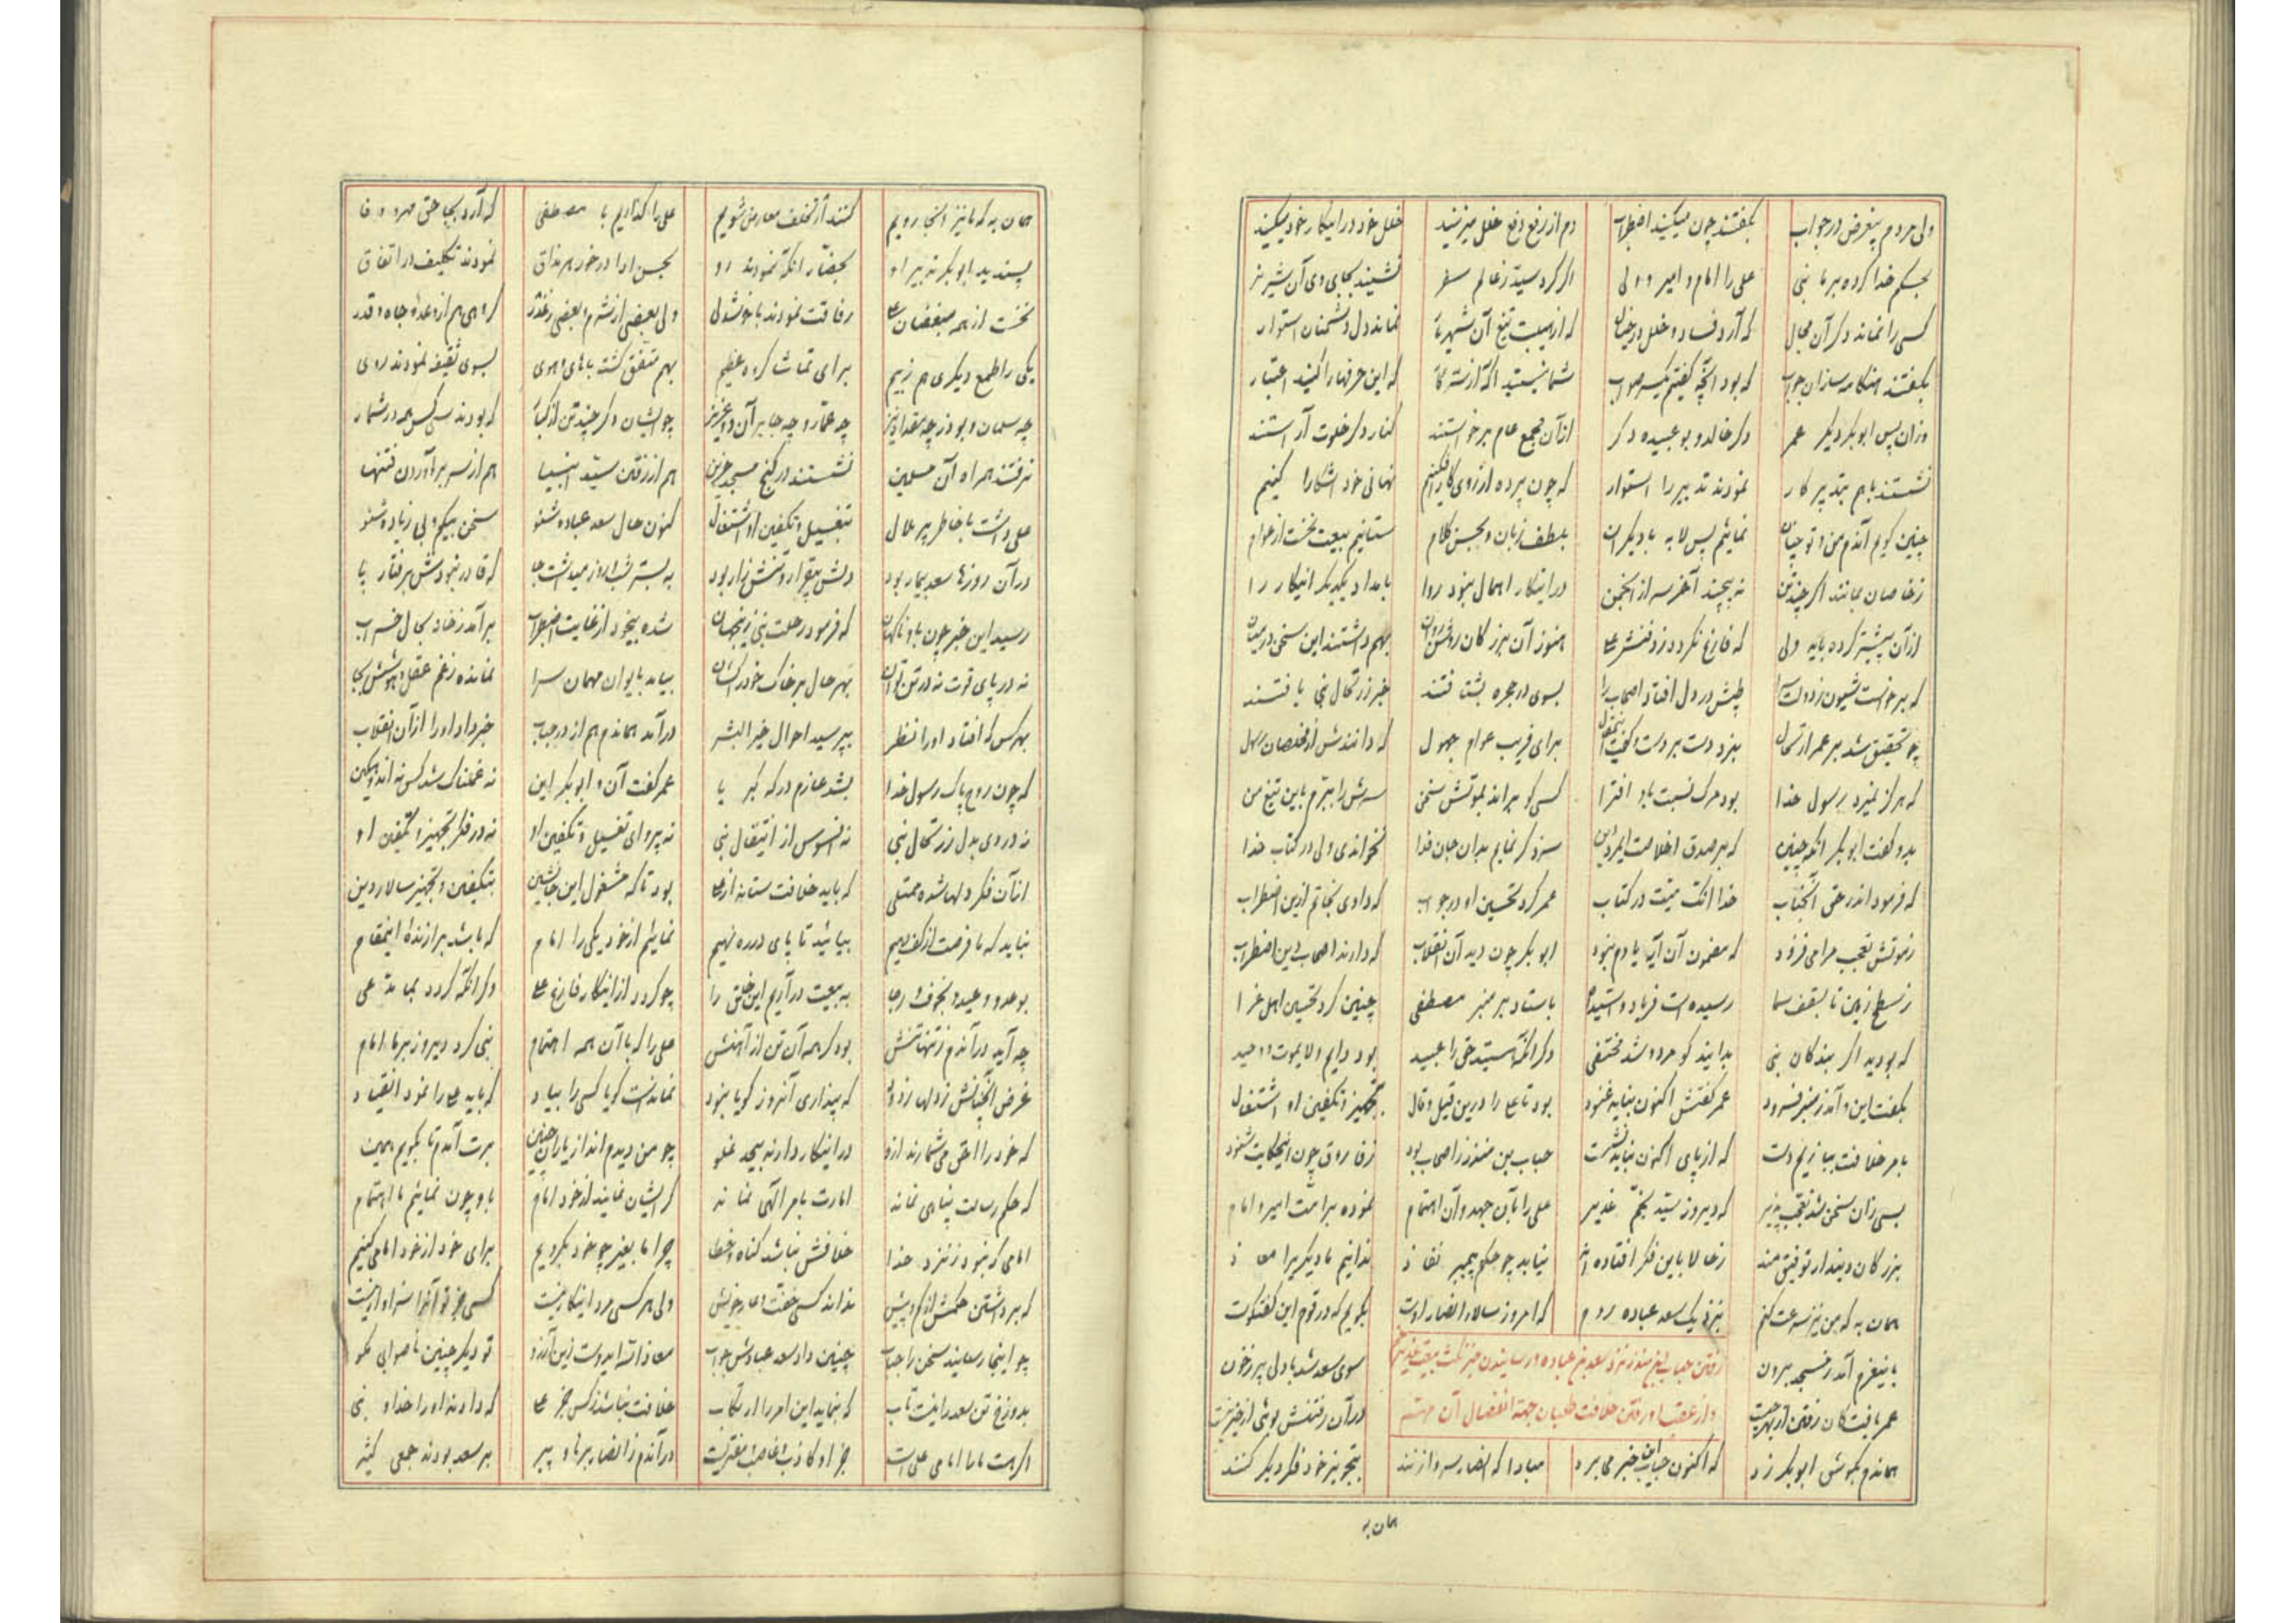 ولی مردم بیغرض در جواب بگفتند چون میکنید اضطراب دم از رفع و دفع خلل میزنید خلل خود در اینکار خود میکنید
بحکم خدا کرده بر ما نبی علی را امام و امیر و ولی اگر کرد سید ز عالم سفر نشیند بجای وی آن شیر نر
کسی را نماند دگر آن مجال که آرد فساد و خلل در خیال که از هیبت تیغ آن شهریار نماند دل دشمنان استوار
بگفتند هنکامه سازان جواب که بود آنچه گفتیم یکسر صواب شما نیستید آگه از سر کار که این حرفها را کنید اعتبار
وزان پس ابوبکر دیگر عمر دگر خالد و بو عبیده دگر از آن مجمع عام برخواستند کنار دگر خلوت آراستند
نشستند با هم بتدبیر کار نمودند تدبیر را استوار که چون پرده از روی کار افکنیم نهانی خود آشکارا کنیم
چنین گویم آندم من و تو چنان نمائیم پس لابه با دیگران بلطف زبان و بحسن کلام ستانیم بیعت نخست از عوام
ز خاصان بمانند اگر چند تن نه پیچند آخر سر از انجمن در اینکار اهمال نبود روا بامداد یکدیگر اینکار را
از آن پیشتر کرده باید ولی که فارغ نگردد ز دفنش علی هنوز آن بزرگان روشن روان بهم داشتند این سخن در میان
که برخواست شیون ز دولت سرا طپش در دل افتاد اصحاب را بسوی در حجره بشتافتند خبر ز ارتحال نبی یافتند
چو تحقیق شد بر عمر ارتحال بزد دست بر دست و گفت برای فریب عوام جهول که دانندش از مخلصان رسول
که هرگز نمیرد رسول خدا بود مرگ نسبت باو افترا کسی کو براند بموتش سخن سرش را ببرم باین تیغ من
بدو گفت ابوبکر آنکه چنین که بر صدق اخلاصت سزد گر نمایم بدان جان فدا نخواندی ولی در کتاب خدا
که فرمود اندر حق آنجناب خدا انک میت در کتاب عمر کرد تحسین او در جواب که دادی نجاتم ازین اضطراب
ز موتش تعجب مرا می فزود که مضمون آن آیه یادم نبود ابوبکر چون دید آن انقلاب که دارند اصحاب دین اضطراب
ز سطح زمین تا بسقف سما رسیده است فریاد واسیدا باستاد بر منبر مصطفی چنین کرد تحسین اهل عزا
که بودید اگر بندگان نبی بدانید کو مرد و شد مختفی وگر آنکه هستید حق را عبید بود دایم و لایموت و وحید
بگفت این و آمد ز منبر فرود عمر گفتش اکنون نباید غنود بود تا علی را درین قیل و قال بتجهیز و تکفین او اشتغال
بامر خلافت بیازیم دست که از پای اکنون نباید نشست حباب بن منذر ز اصحاب بود ز فاروق چون اینحکایت شنود
بسی زان سخن شد تعجب پذیر که دیروز سید بخم غدیر علی را بآن جهد و آن اهتمام نموده بر امت امیر و امام
بزرگان دیندار توفیق مند ز حالا باین فکر افتاده اند نیابد چو حکم پیمبر نفاذ ندانیم ما دیگریرا معاذ
همان به که من نیز سرعت کنم بنزدیک سعد عباده روم که امروز سالار انصار اوست بگویم که در قوم این گفتگوست
باینعزم آمد ز مسجد برون سوی سعد شد با دلی پر ز خون
رفتن حباب ابن منذر نزد سعد بن عباده و رسانیدن خبر
عمر یافت کان رفتن از بهر چیست در آن رفتنش بوئی از خیر نیست
و از عقب او رفتن خلافت طلبان جهة انفصال آن مهم
هماندم بگوش ابوبکر زد که اکنون حباب این خبر می برد مبادا که انصار سر وا زنند بتجویز خود فکر دیگر کنند
همان به
همان به که ما نیز آنجا رویم کنند ار تخلف معارض شویم علی را گذاریم با مصطفی که آرد بجا حق مهر و وفا
پسندید ابوبکر تدبیر او بحضار آنکه نمودند رو بحسن ادا در خور هر مذاق نمودند تکلیف در اتفاق
نخست از همه مبغضان علی رفاقت نمودند با خوشدلی ولی بعضی از شرم و بعضی ز غدر گروهی هم از وعدهٔ جاه و قدر
یکی را طمع دیگری هم ز بیم برای تماشا گروه عظیم بهم متفق گشته با های و هوی بسوی ثقیفه نمودند روی
چه سلمان و بوذر چه مقداد نیز چه عمار و چه جابر آن و عزیز چو ایشان دگر چند تن از کبار که بودند سی کس همه در شمار
نرفتند همراه آن مسلمین نشستند در کنج مسجد حزین هم از رفتن سید انبیا هم از سر برآوردن فتنها
علی داشت با خاطر پر ملال بتغسیل و تکفین او اشتغال کنون حال سعد عباده شنو سخن بیکم و بی زیاده شنو
در آن روزها سعد بیمار بود دلش بیقرار و تنش زار بود به بستر شب و روز میداشت جا که قادر نبودش برفتار پا
رسید این خبر چون باو ناگهان که فرمود رحلت نبی زینجهان شده بیخود از غایت اضطراب برآمد ز خانه بحال خراب
نه در پای قوت نه در تن توان بهر حال بر خاک خود را کشان بیامد بایوان مهمان سرا نمانده ز غم عقل و هوشش بجا
بهر کس که افتاد او را نظر بپرسید احوال خیر البشر درآمد هماندم هم از در حباب خبر داد او را از آن انقلاب
که چون روح پاک رسول خدا بشد عازم درگه کبریا عمر گفت آن و ابوبکر این نه غمناک شد کس نه اندوهگین
نه دردی بدل ز ارتحال نبی نه افسوس از انتقال نبی نه پروای تغسیل و تکفین او نه در فکر تجهیز و تکفین او
از آن فکر دلها شده ممتلی که باید خلافت ستانه از علی بود تا که مشغول این جانشین بتکفین و تجهیز سالار دین
نباید که ما فرصت از کف دهیم بیائید تا پای در ره نهیم نمائیم از خود یکی را امام که باشد برازندهٔ اینمقام
بوعد و وعید و بخوف و رجا به بیعت در آریم این خلق را چو گردد از اینکار فارغ علی وگر آنکه گردد بما مدعی
چه آید در آندم ز تنها تنش بود گر همه آن تن از آهنش علی را که با آن همه اهتمام نبی کرد دیروز بر ما امام
غرض آنچنانش ز دلها زدود که پنداری آنروز گویا نبود نماندست گویا کسی را بیاد که باید علی را نمود انقیاد
که خود را احق می شمارند ازو در اینکار دارند بیحد غلو چو من دیدم انداز یاران چنین برت آمدم تا بگویم همین
که حکم رسالت پناهی نماند امارت بامر الهی نماند گر ایشان نمایند از خود امام باو چون نمائیم ما اهتمام
امامی که نبود ز نزد خدا خلافش نباشد گناه و خطا چرا ما بغیر چو خود بگرویم برای خود از خود امامی کنیم
که برداشتن حکمش از کم و بیش نداند کسی خفت و عار خویش ولی هر کسی مرد اینکار نیست کسی جز تو آنرا سزاوار نیست
چو اینجا رسانید سخن را حباب چنین داد سعد عبادش جواب معاذالله ایدوست زین آرزو تو دیگر چنین ناصوابی مگو
بدوزخ تن سعد را نیست تاب که نماید این امر را ارتکاب خلافت نباشد ز کس جز علی که دادند او را خدا و نبی
اگر هست ما را امامی علی است جز او کاذب و غاصب و مفتریست در آندم ز انصار برنا و پیر بر سعد بودند جمعی کثیر